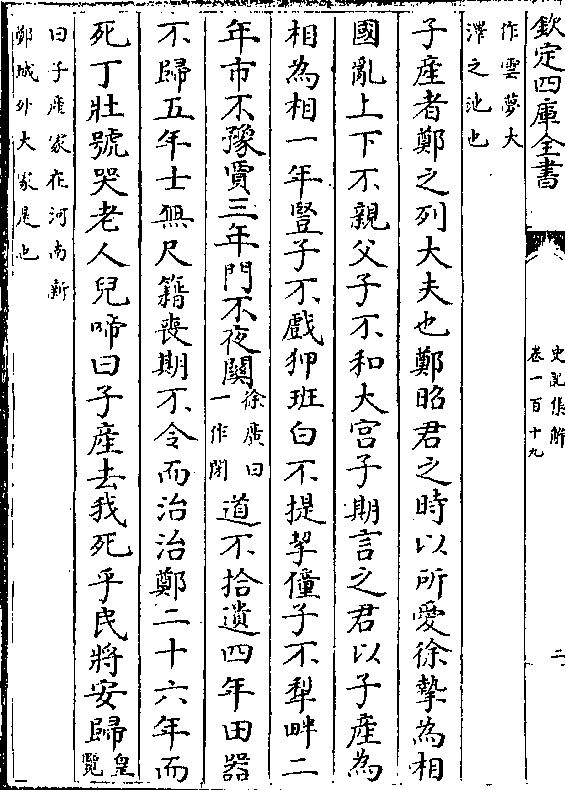 欽定四庫全書
史記集解
卷一百十九
二
作雲夢大
澤之池也
子產者鄭之列大夫也鄭昭君之時以所愛徐摯為相
國亂上下不親父子不和大宮子期言之君以子產為
相為相一年豎子不戲狎班白不提挈僮子不犁畔二
年市不豫賈三年門不夜闗
徐廣曰
一作閉
道不拾遺四年田器
不歸五年士無尺籍喪期不令而治治鄭二十六年而
死丁壯號哭老人兒啼曰子產去我死乎民將安歸
皇
覽
曰子產冢在河南新
鄭城外大冢是也